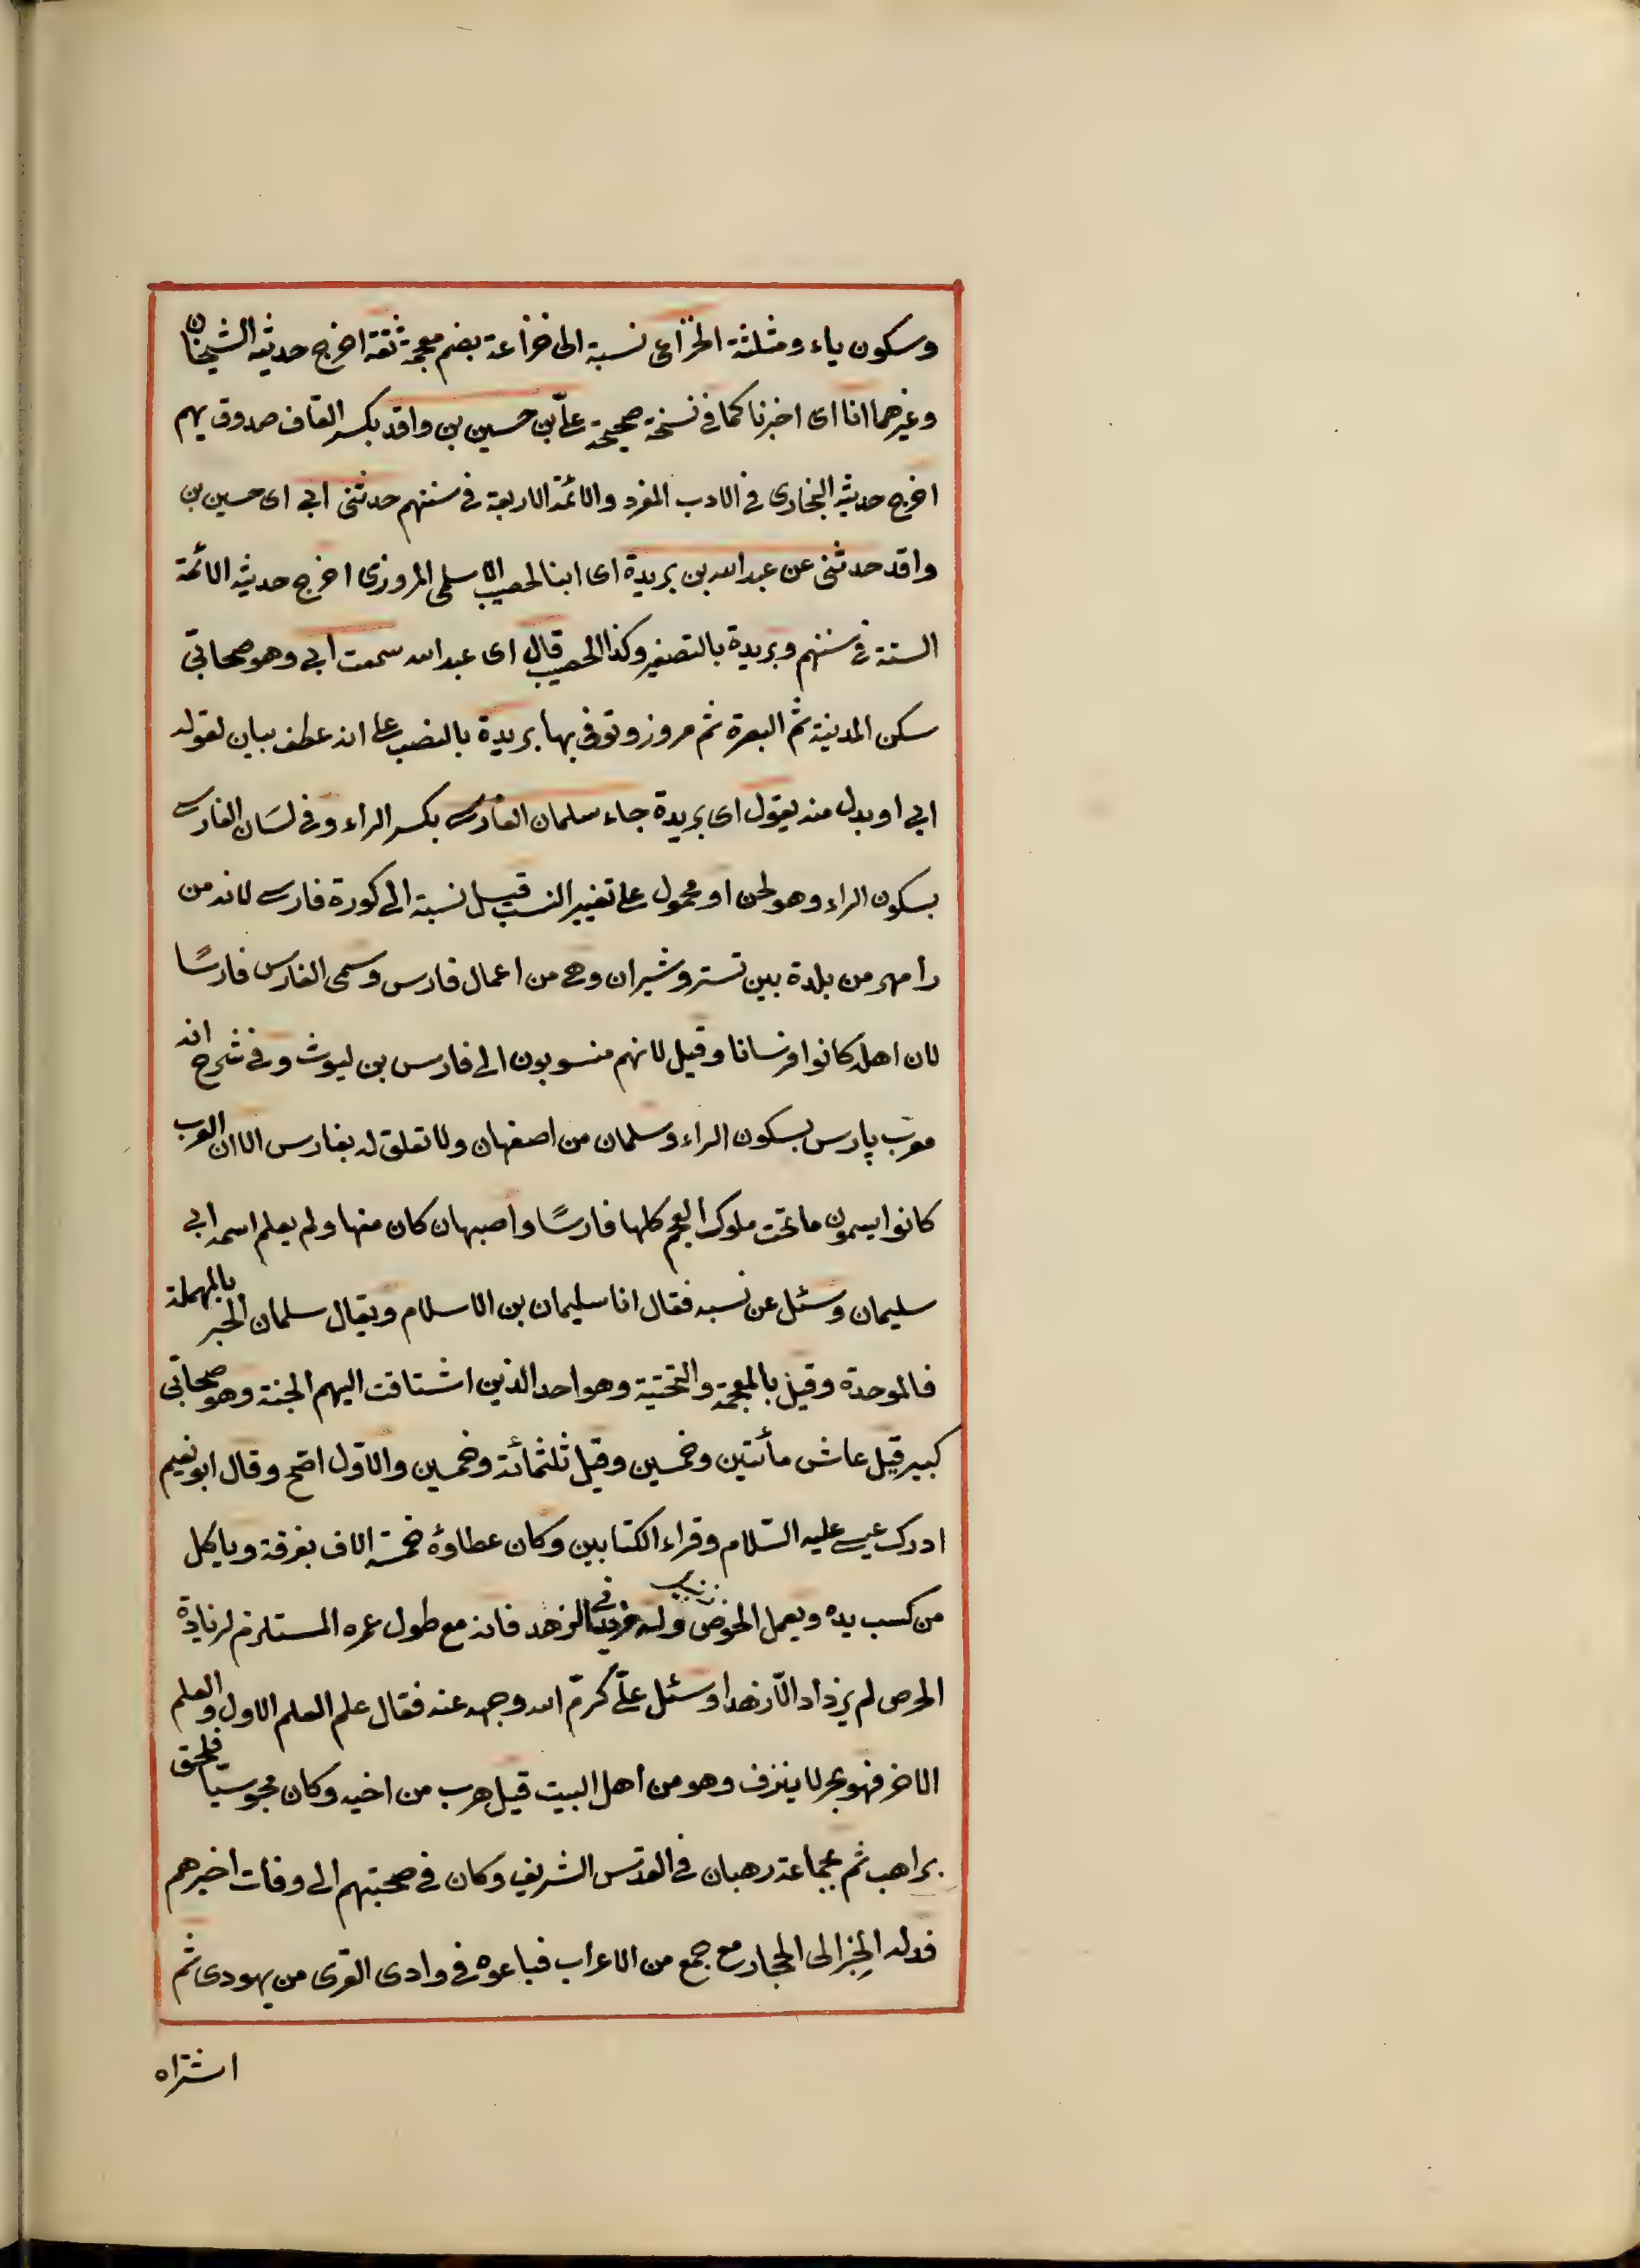 وسكون ياء ومثلثة الخزاعى نسبة الى خزاعة بضم معجمة ثقة اخرج حديثه الشيخان
وغيرهما انا اى اخبرنا كما فى نسخة صحيحة علىّ بن حسين بن واقد بكسر القاف صدوق يهم
اخرج حديثه البخارى فى الادب المفرد والائمة الاربعة فى سننهم حدثنى ابى اى حسين بن
واقد حدثنى عن عبد الله بن بريدة اى ابنا لحصيب الاسلمى المروزى اخرج حديثه الائمة
الستة فى سننهم وبريدة بالتصغير وكذا الحصيب قال اى عبد الله سمعت ابى وهو صحابىّ
سكن المدينة ثم البصرة ثم مروز وتوفى بها بريدة بالنصب على انه عطف بيان لقوله
ابى او بدل منه يقول اى بريدة جاء سلمان الفارسى بكسر الراء وفى لسان الفارسى
بسكون الراء وهو لحن او محمول على تغيير النسب قيل نسبة الى كورة فارس لانه من
رامهرمن بلدة بين تستر وشيران وهى من اعمال فارس وسمى الفارس فارسًا
لان اهله كانوا فرسانا وقيل لانهم منسوبون الى فارس بن ليوث وفى شرح انه
معرّب پارس بسكون الراء وسلمان من اصفهان ولا تعلق له بفارس الا ان العرب
كانوا يسمون ما تحت ملوك العجم كلها فارسًا واصبهان كان منها ولم يعلم اسمه ابى
سليمان وسئل عن نسبه فقال انا سليمان بن الاسلام ويقال سلمان الحبر بالمهملة
فالموحدة وقيل بالمعجمة والتحتية وهو احد الذين اشتاقت اليهم الجنة وهو صحابىّ
كبير قيل عاش مأتين وخمسين وقيل ثلثمائة وخمسين والاوّل اصح وقال ابو نعيم
ادرك عيسى عليه السّلام وقراء الكتابين وكان عطاوهٔ خمسة الاف يفرقه وياكل
من كسب يده ويعمل الخوض وله مزيد فى الزهد فانه مع طول عمره المستلزم لزيادة
الحرص لم يزداد الّا زهدا وسئل علىّ كرّم الله وجهه عنه فقال علم العلم الاول والعلم
الاخر فهو بحر لا ينزف وهو من اهل البيت قيل هرب من اخيه وكان مجوسيّا فلحق
براهب ثم بجماعة رهبان فى القدس الشريف وكان فى صحبتهم الى وفات اخيرهم
فدله الحبر الى الحجاز مع جمع من الاعراب فباعوه فى وادى القرى من يهودى ثم
اشتراه